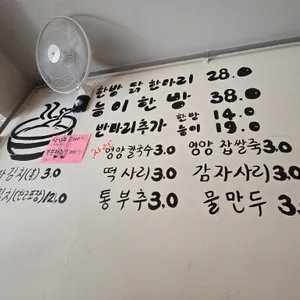 한방 닭 한마리 28.0
능이 한 방 38.0
반마리추가 한방 14.0
능이 19.0
영양 칼국수 3.0 영양 찹쌀죽 3.0
떡 사리 3.0 감자사리 3.0
통 부추 3.0 물만두 3.0
3.0
12.0